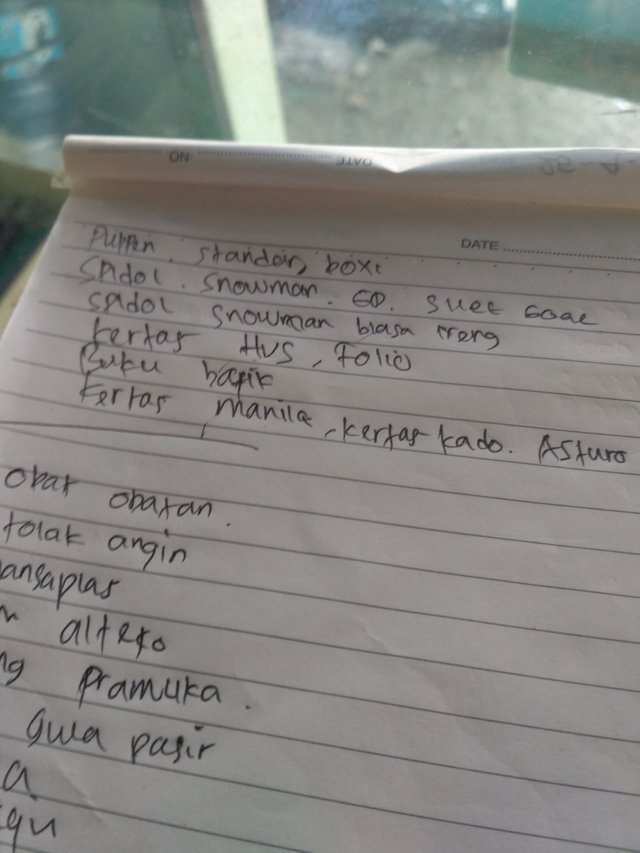 NO DATE
DATE
Pulpen. standar, boxi
Spidol. Snowman. GD.
Spidol Snowman biasa ireng
kertas HVS, Folio
Buku batik
kertas manila, kertas kado. Asturo
obat obatan.
tolak angin
ansaplas
alteko
Pramuka.
gula pasir